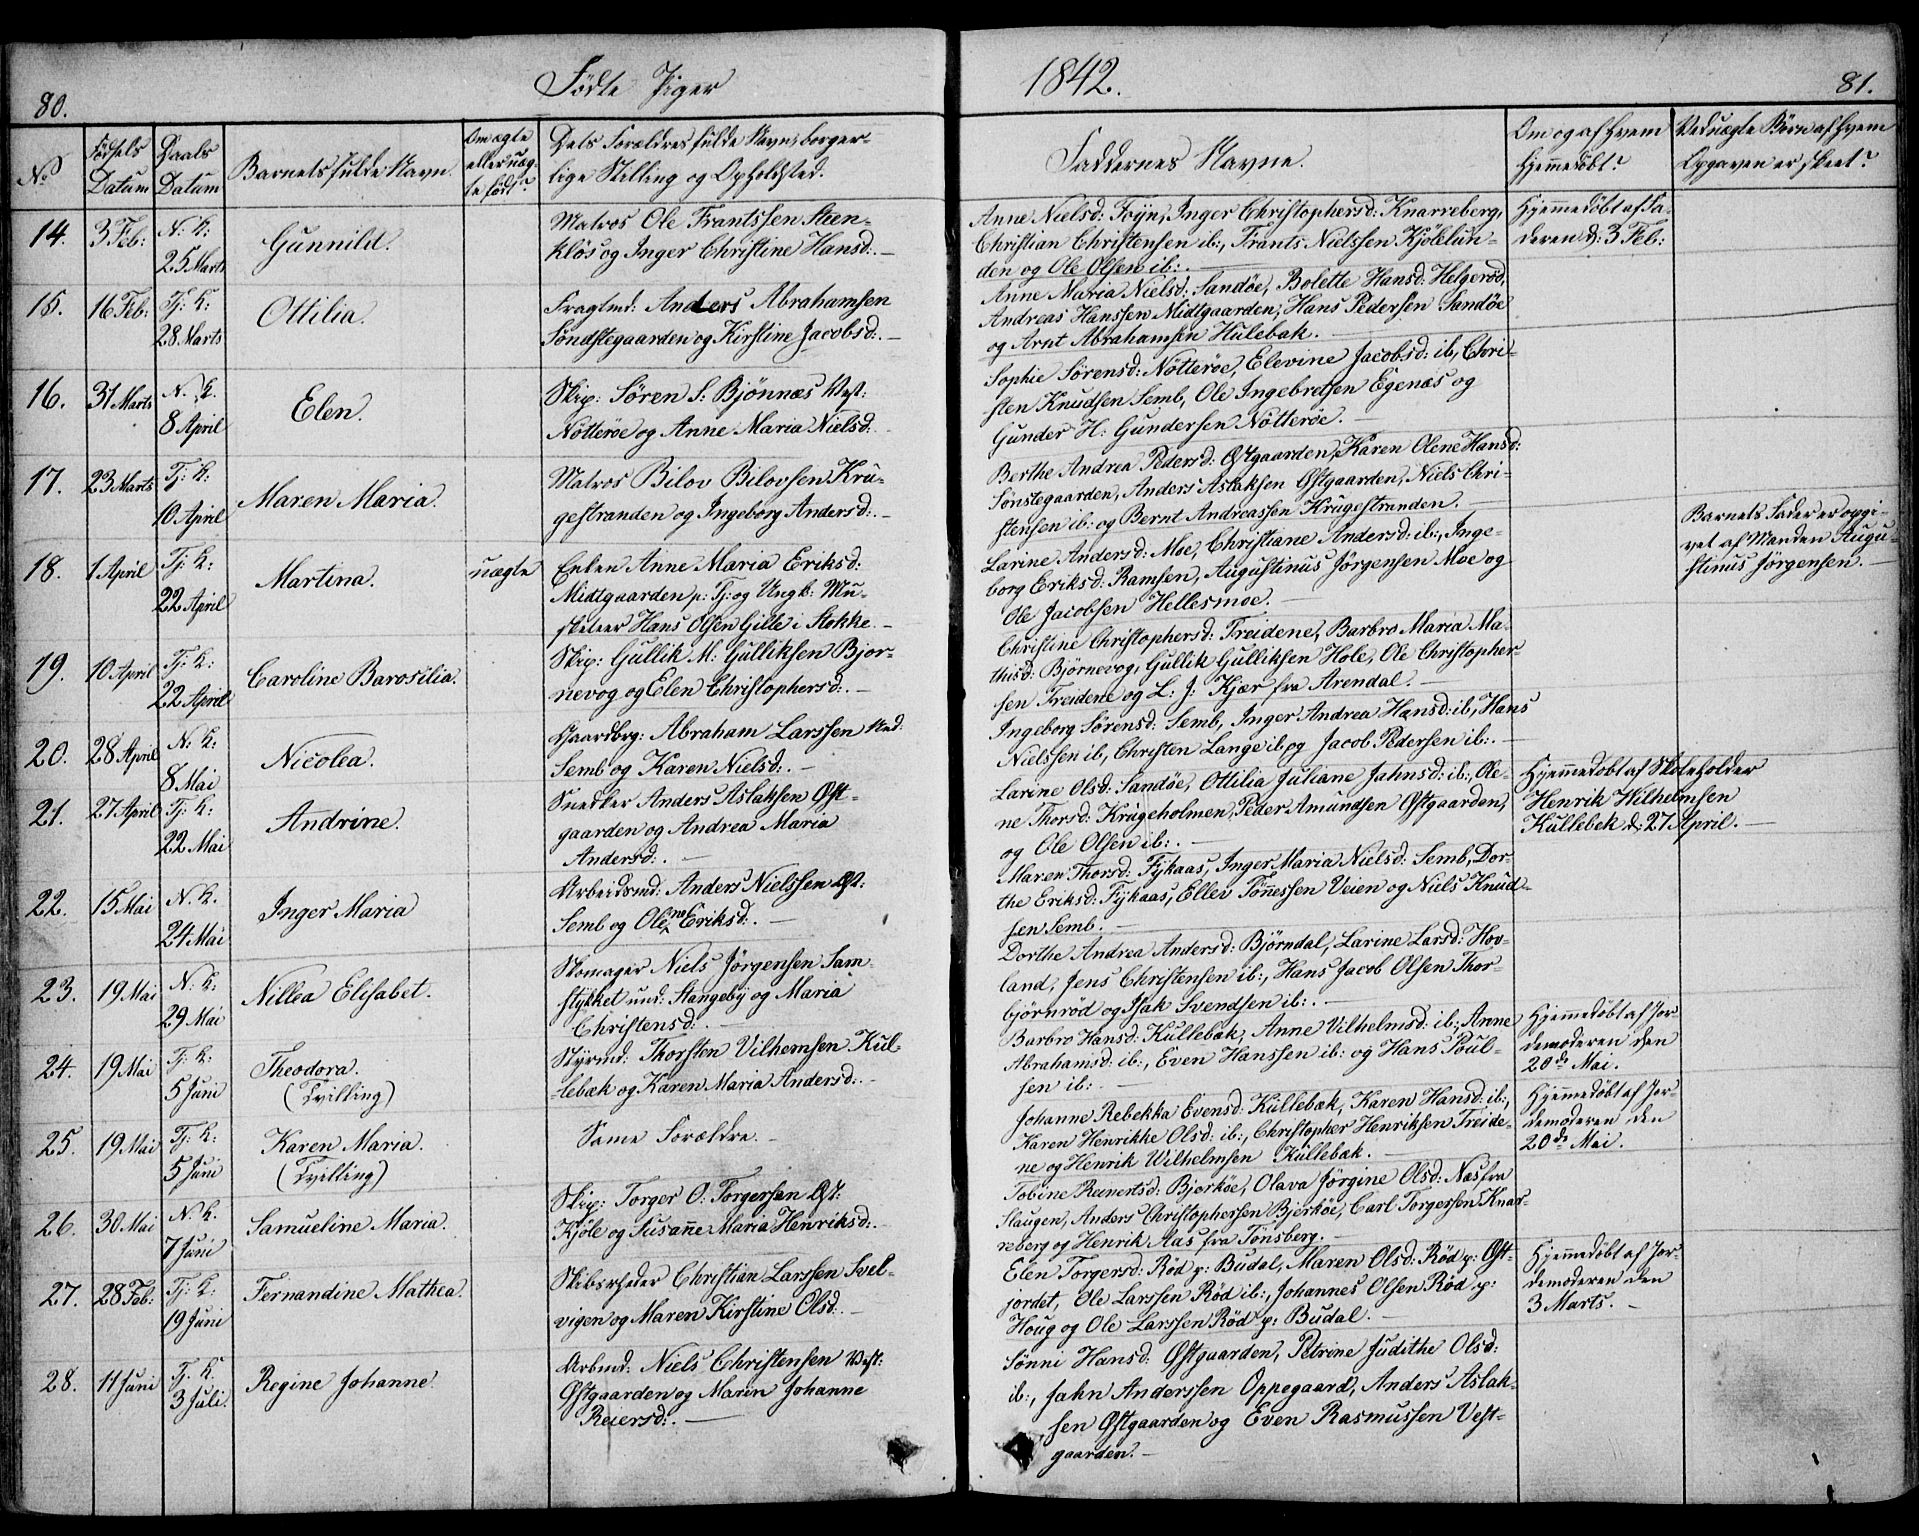 80.
Fødte Piger
1842.
81.
No
Fødsels Datum
Daabs Datum
Barnets fulde Navn.
Om ægte eller uægte født?
Dets Forældres fulde Navn, borgerlige Stilling og Opholdsted.
Faddernes Navne.
Om og af Hvem Hjemmedøbt?
Ved uægte Børn af Hvem Opgaven er skeet?
14. 3 Feb: N. K: 25 Marts Gunnild.
Matros Ole Frantssen Steen-
kløs og Inger Christine Hansd:. –
Anne Nielsd: Foyn, Inger Christophersd: Knarreberg,
Christian Christensen ib:, Frants Nielssen Kjølelun-
den og Ole Olsen ib:. –
Hjemmedøbt af Fa-
deren d: 3 Feb:
15. 16 Feb: Tj: K: 28 Marts Ottilia.
Fragtmd: Anders Abrahamsen
Søndstegaarden og Kirstine Jacobsd:. –
Anne Maria Nielsd: Sandøe, Bolette Hansd: Helgerød,
Andreas Hanssen Midtgaarden, Hans Pedersen Sandøe
og Arnt Abrahamsen Hulebak. –
16. 31 Marts N. K. 8 April Elen.
Skip: Søren S: Bjønnæs Vest:
Nøtterøe og Anne Maria Nielsd:
Sophie Sørensd: Nøtterøe, Elevine Jacobsd: ib, Chri-
sten Knudsen Semb, Ole Ingebretsen Egenæs og
Gunder H: Gundersen Nøtterøe. –
17. 23 Marts Tj: K: 10 April Maren Maria.
Matros Bilov Bilovsen Kru-
gestranden og Ingeborg Andersd:. –
Berthe Andrea Pedersd: Østgaarden, Karen Olene Hansd:
Sønstegaarden, Anders Aslaksen Østgaarden, Niels Chri-
stensen ib: og Bernt Andreassen Krugestranden.
18. 1 April Tj: K: 22 April Martina. uægte
Enken Anne Maria Eriksd:
Midtgaarden p: Tj: og Ungk: Mu-
sketeer Hans Olsen Gille i Stokke. –
Larine Andersd: Moe, Christiane Andersd: ib:, Inge-
borg Eriksd: Ramsen, Augustinus Jörgensen Moe og
Ole Jacobsen Hellesmoe. –
Barnets Fader er opgi-
vet af Manden Augu-
stinus Jørgensen. –
19. 10 April Tj: K: 22 April Caroline Barosilia.
Skip: Gullik M: Gulliksen Bjor-
nevog og Elen Christophersd:. –
Christine Christophersd: Treidene, Barbro Maria Ma-
thisd: Björnevog, Gullik Gulliksen Hole, Ole Christopher-
sen Treidene og L: J: Kjær fra Arendal. –
20. 28 April N: K: 8 Mai Nicolea.
Gaardbrg: Abraham Larssen Ned:
Semb og Karen Nielsd:. –
Ingeborg Sørensd: Semb, Inger Andrea Hansd: ib, Hans
Nielssen ib, Christen Lange ib og Jacob Pedersen ib:. –
21. 27 April Tj: K: 22 Mai Andrine.
Snedker Anders Aslaksen Øst-
gaarden og Andrea Maria
Andersd:. –
Larine Olsd: Sandøe, Ottilia Juliane Jahnsd: ib:, Ole-
ne Thorsd: Krugeholmen, Peder Amundsen Østgaarden,
og Ole Olsen ib:. –
Hjemmedøbt af Skoleholder
Henrik Wilhelmsen
Kullebek d: 27 April. –
22. 15 Mai N. K. 24 Mai Inger Maria
Arbeidsmd: Anders Nielssen Øst:
Semb og Olene Eriksd:. –
Maren Thorsd: Fykaas, Inger Maria Nielsd: Semb, Dor-
the Eriksd: Fykaas, Ellev Tønnessen Veien og Niels Knud-
sen Semb. –
23. 19 Mai N: K: 29 Mai Nillea Elisabet.
Skomager Niels Jørgensen Sam-
stykket und: Stangeby og Maria
Christensd:. –
Dorthe Andrea Andersd: Bjørndal, Larine Larsd: Hov-
land, Jens Christensen ib:, Hans Jacob Olsen Thor-
bjørnrød og Isak Svendsen ib:. –
24. 19 Mai Tj: K: 5 Juni Theodora.
(Tvilling)
Styrmd: Thorsten Vilhemsen Kul-
lebæk og Karen Maria Andersd:. –
Barbro Hansd: Kullebæk, Anne Vilhelmsd: ib:, Anne
Abrahamsd: ib:, Even Hanssen ib: og Hans Poul-
sen ib:. –
Hjemmedøbt af Jor-
demoderen den
20de Mai.
25. 19 Mai Tj: K: 5 Juni Karen Maria.
(Tvilling)
Same Forældre. –
Johanne Rebekka Evensd: Kullebæk, Karen Hansd: ib:,
Karen Henrikke Olsd: ib:, Christopher Henriksen Treide-
ne og Henrik Wilhelmsen Kullebæk. –
Hjemmedøbt af Jor-
demoderen den
20de Mai.
26. 30. Mai N. K. 7 Juni Samueline Maria.
Skip: Torger O: Torgersen Øst:
Kjøle og Susanne Maria Henriksd:. –
Tobine Reinertsd: Bjerkøe, Olava Jörgine Olsd: Næs fra
Slaugen, Anders Christophersen Bjerkøe, Carl Torgersen Knar-
reberg og Henrik Aas fra Tønsberg. –
27. 28 Feb: Tj: K: 19 Juni Fernandine Mathea.
Skibsrheder Christian Larssen Svel-
vigen og Maren Kirstine Olsd:. –
Elen Torgersd: Rød p: Budal, Maren Olsd: Rød p: Øst-
jordet, Ole Larssen Rød ib:, Johannes Olsen Rød p:
Houg og Ole Larssen Rød p: Budal. –
Hjemmedøbt af Jor-
demoderen den
3 Marts. –
28. 11 Juni Tj. K. 3 Juli. Regine Johanne.
Arbmd: Niels Christensen Vest:
Østgaarden og Maren Johanne
Reiersd:. –
Sønni Hansd: Østgaarden, Petrine Judithe Olsd:
ib:, Jahn Anderssen Oppegaard, Anders Aslak-
sen Østgaarden og Even Rasmussen Vest-
gaarden. –